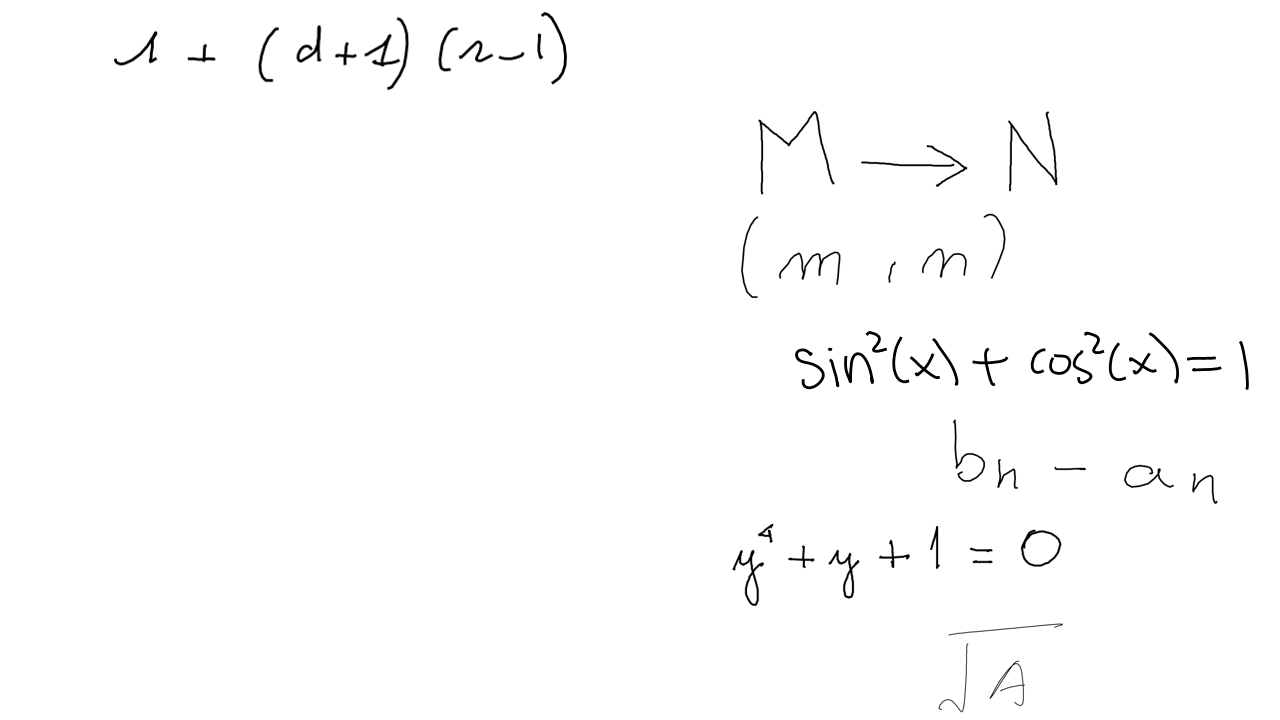 1 + (d+1) (r-1)
M → N
(m, n)
sin²(x) + cos²(x) = 1
bₙ - aₙ
y⁴ + y + 1 = 0
√A